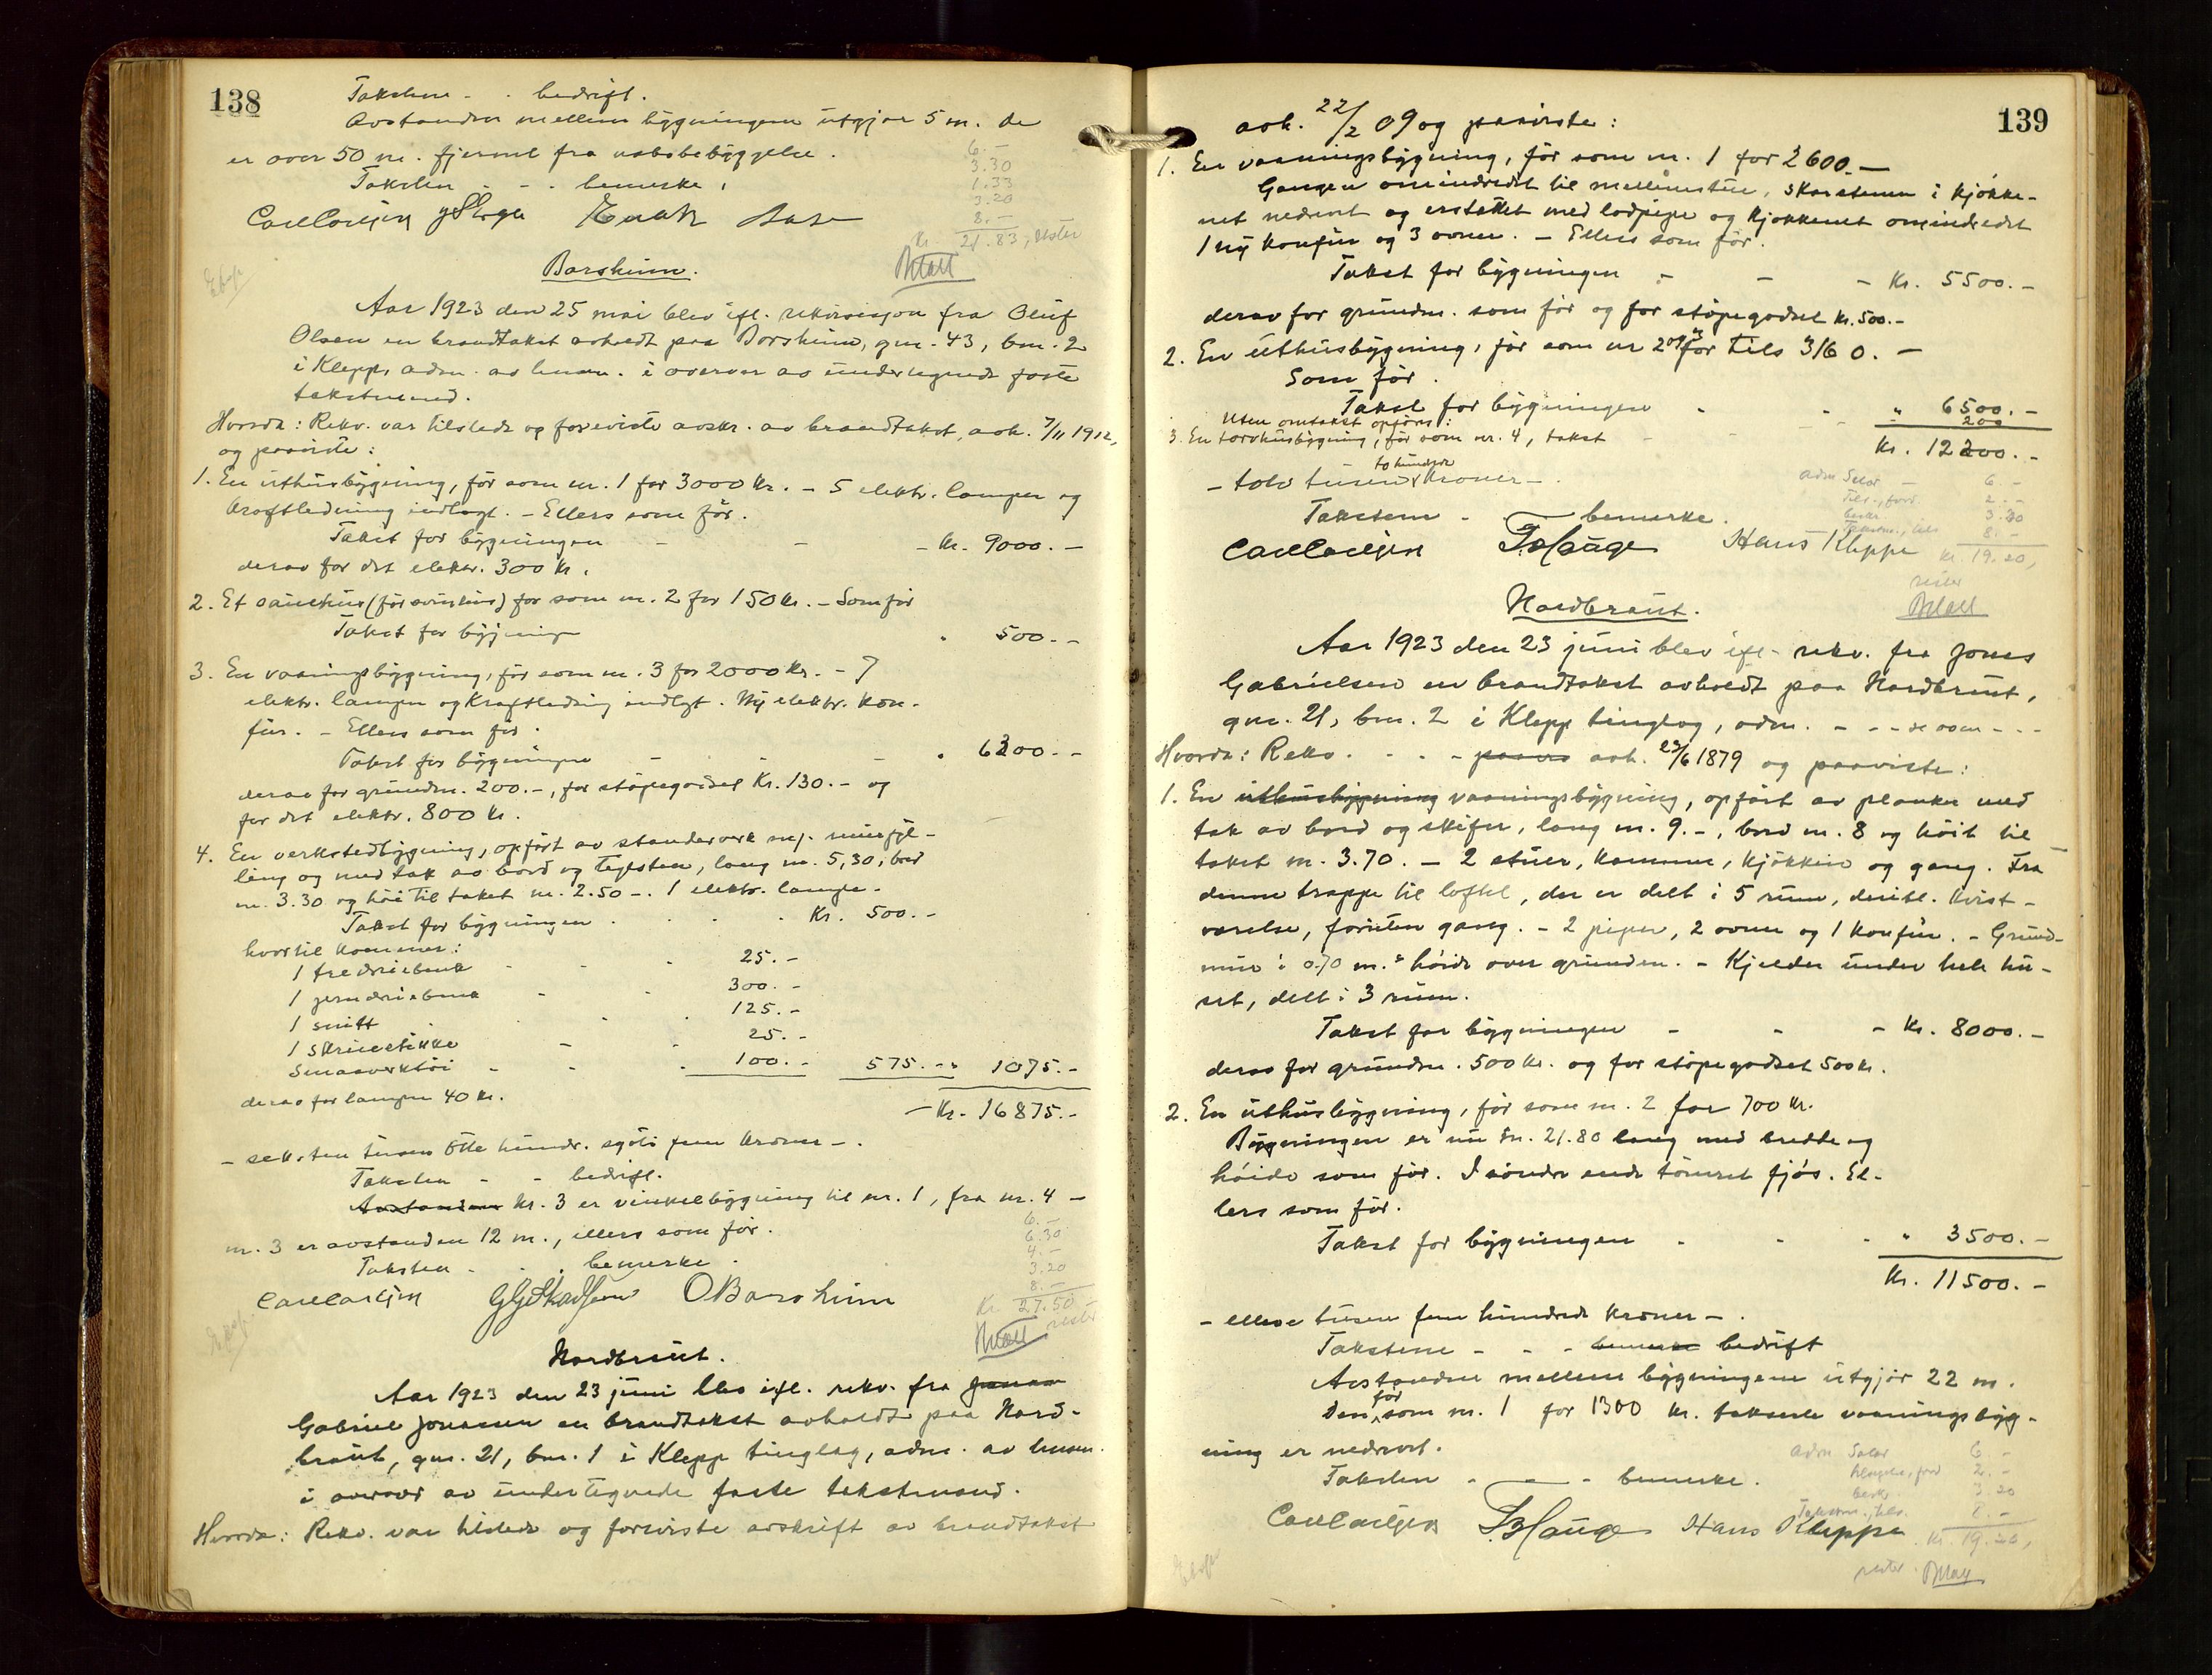 138
Taksten - - bedrift.
Avstanden mellem bygningene utgjør 5 m. de
er over 50 m. fjernet fra nabobebyggelse.
Taksten - - - bemerke.
6.-
3.30
1.33
3.20
8.-
Kr. 21.83, rester
Betalt
Borsheim.
Aar 1923 den 25 mai blev ifl. rekvisisjon fra Oluf
Olsen en brandtakst avholdt paa Borsheim, gnr. 43, bnr. 2
i Klepp, adm. av lensm. i overvær av undertegnede faste
takstmænd.
Hvorda: Rekv. var tilstede og foreviste avskr. av brandtakst, avh. 7/11 1912,
og paaviste:
1. En uthusbygning, før som nr. 1 for 3000 Kr. - 5 elektr. lamper og
kraftledning indlagt. - Ellers som før.
Takst for bygningen - - - Kr. 9000.-
derav for det elektr. 300 Kr.
2. Et sauehus (før svinehus) før som nr. 2 for 150 Kr. - Som før
Takst for bygningen " 500.-
3. En vaaningsbygning, før som nr. 3 for 2000 Kr. - 7
elektr. lamper og Kraftledning indlagt. Ny elektr. kom-
fur. - Ellers som før.
Takst for bygningen - - - " 6300.-
derav for grundm. 200.-, for støpegodset Kr. 130.- og
for det elektr. 800 Kr.
4. En verkstedbygning, opført av standerverk m/.
og med tak av bord og Teglsten, lang m. 5,30, bred
m. 3.30 og høi til taket m. 2.50 -. 1 elektr. lampe.
Takst for bygningen . . . . Kr. 500.-
hvortil kommer:
1 trædreiebenk - - - 25.-
1 jerndreiebenk - - 300.-
1 snitt . . . 125.-
1 skruestikke - - 25.-
Smaaverktøi - - - 100.- 575.- " 1075.-
derav for lampen 40 Kr.
- Kr. 16875.-
- seksten tusen Otte hundr. sytti fem kroner -.
Taksten - - bedrift.
Avstanden Nr. 3 er vinkelbygning til nr. 1, fra nr. 4 -
nr. 3 er avstanden 12 m., ellers som før.
Taksten . . . bemerke.
6.-
6.30
4.-
3.20
8.-
Kr. 27.50 rester
Betalt
O Borsheim
Nordbraut.
Aar 1923 den 23 juni blev ifl. rekv. fra Jonas
Gabriel Jonassen en brandtakst avholdt paa Nord-
braut, gnr. 21, bnr. 1 i Klepp tinglag, adm. av lensm.
i overvær av undertegnede faste takstmænd.
Hvorda: Rekv. var tilstede og foreviste avskrift av brandtakst
139
avh. 22/2 09 og paaviste:
1. En vaaningsbygning, før som nr. 1 for 2600.-
Gangen omindredet til mellemstue, skorstenen i kjøkke-
net nedrevet og erstattet med lodpipe og kjøkkenet omindredet
1 ny komfur og 3 ovner. - Ellers som før.
Takst for bygningen - - - Kr. 5500.-
derav for grundm. som før og for støpegodset kr. 500.-
2. En uthusbygning, før som nr 2 og 3 for tils 3160.-
Som før.
Takst for bygningen - - " 6500.-
Uten omtakst opføres:
3. En torvhusbygning, før som nr. 4, takst - - - " 200
Kr. 12200.-
to hundrede
- tolv tusen kroner -
Taksten - - bemerke.
Adm Salær - 6.-
Tils., ford. 2.-
beskr. 3.20
Takstm., tils 8.-
Kr. 19.20,
rester
Betalt
Carl Carlsen T. Hauge Hans Kleppe
Nordbraut.
Aar 1923 den 23 juni blev ifl. rekv. fra Jonas
Gabrielsen en brandtakst avholdt paa Nordbraut,
gnr. 21, bnr. 2 i Klepp tinglag, adm. - - - som - - -
Hvorda: Rekv. . . . - paavis avh. 23/6 1879 og paaviste:
1. En uthusbygning vaaningsbygning, opført av planker med
tak av bord og skifer, lang m. 9.-, bred m. 8 og høit til
taket m. 3.70. - 2 stuer, kammer, kjøkken og gang. Fra
denne trappe til loftet, der er delt i 5 rum, deribl. kvist-
værelse, foruten gang. - 2 piper, 2 ovner og 1 komfur. - Grund-
mur i 0.70 m.s høide over grunden. - Kjelder under hele hu-
set, delt i 3 rum.
Takst for bygningen - - - Kr. 8000.-
derav for grundm. 500 Kr. og for støpegodset 500 kr.
2. En uthusbygning, før som nr. 2 for 700 Kr.
Bygningen er nu m. 21.80 lang med bredde og
høide som før. I søndre ende tømret fjøs. El-
lers som før.
Takst for bygningen - - - " 3500.-
Kr. 11500.-
- elleve tusen fem hundrede kroner -.
Takstene - - - bemerke bedrift
Avstanden mellem bygningene utgjør 22 m.
Den før som nr. 1 for 1300 kr. takserte vaaningsbyg-
ning er nedrevet.
Taksten - - - bemerke.
Adm Salær 6.-
tilsyn, ford 2.-
beskr. 3.20
Takstm., tils. 8.-
Kr. 19.20,
rester. Betalt
Carl Carlsen T. Hauge Hans Kleppe